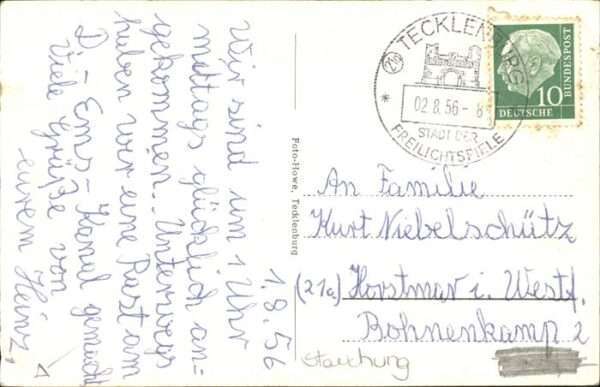 1.8.56
Wir sind um 1 Uhr
mittags glücklich an-
gekommen. Unterwegs
haben wir eine Rast am
D.-Ems-Kanal gemacht
Viele Grüße von
eurem Heinz.
Foto-Howe, Tecklenburg
(21a) TECKLENBURG
02.8.56-8
STADT DER
FREILICHTSPIELE
10
DEUTSCHE
BUNDESPOST
An Familie
Kurt Niebelschütz
(21a) Horstmar i. Westf.
Bohnenkamp 2